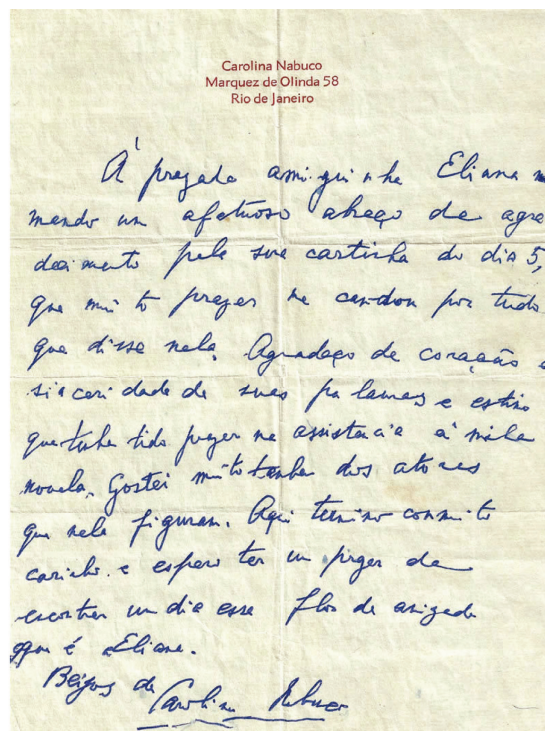 Carolina Nabuco
Marquez de Olinda 58
Rio de Janeiro
À prezada amiguinha Eliana
mando um afetuoso abraço de agra
decimento pela sua cartinha do dia 5,
que muito prazer me causou por tudo
que disse nela. Agradeço de coração a
sinceridade de suas palavras e estimo
que tenha tido prazer na assistência à minha
novela. Gostei muito também dos atores
que nela figuram. Aqui termino com muito
carinho e espero ter um prazer de
encontrar um dia essa flor de amizade
que é Eliane.
Beijos de
Carolina Nabuco